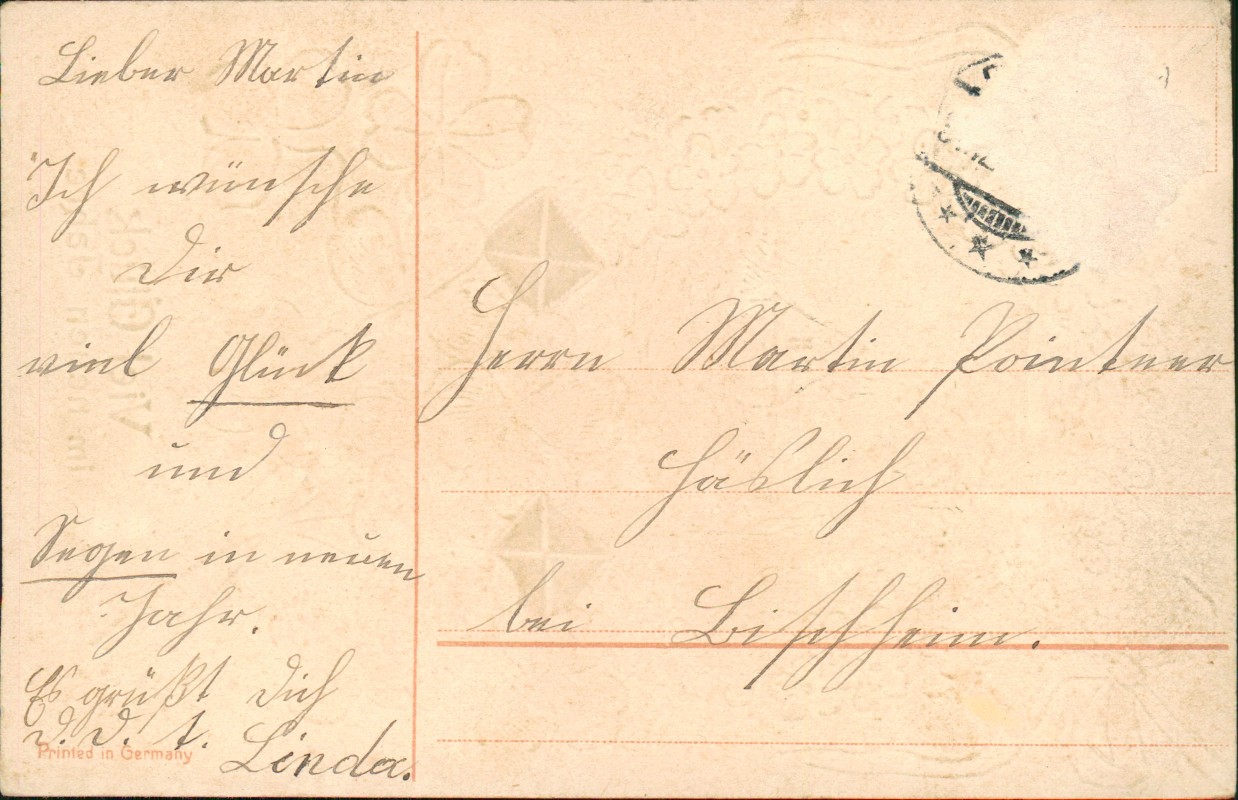 Lieber Martin
Ich wünsche
Dir
viel Glück
und
Segen in neuen
Jahr.
Es grüßt Dich
D. d. t.
Linda.
Printed in Germany
Herrn Martin Pointner
Häslich
bei Bischheim.